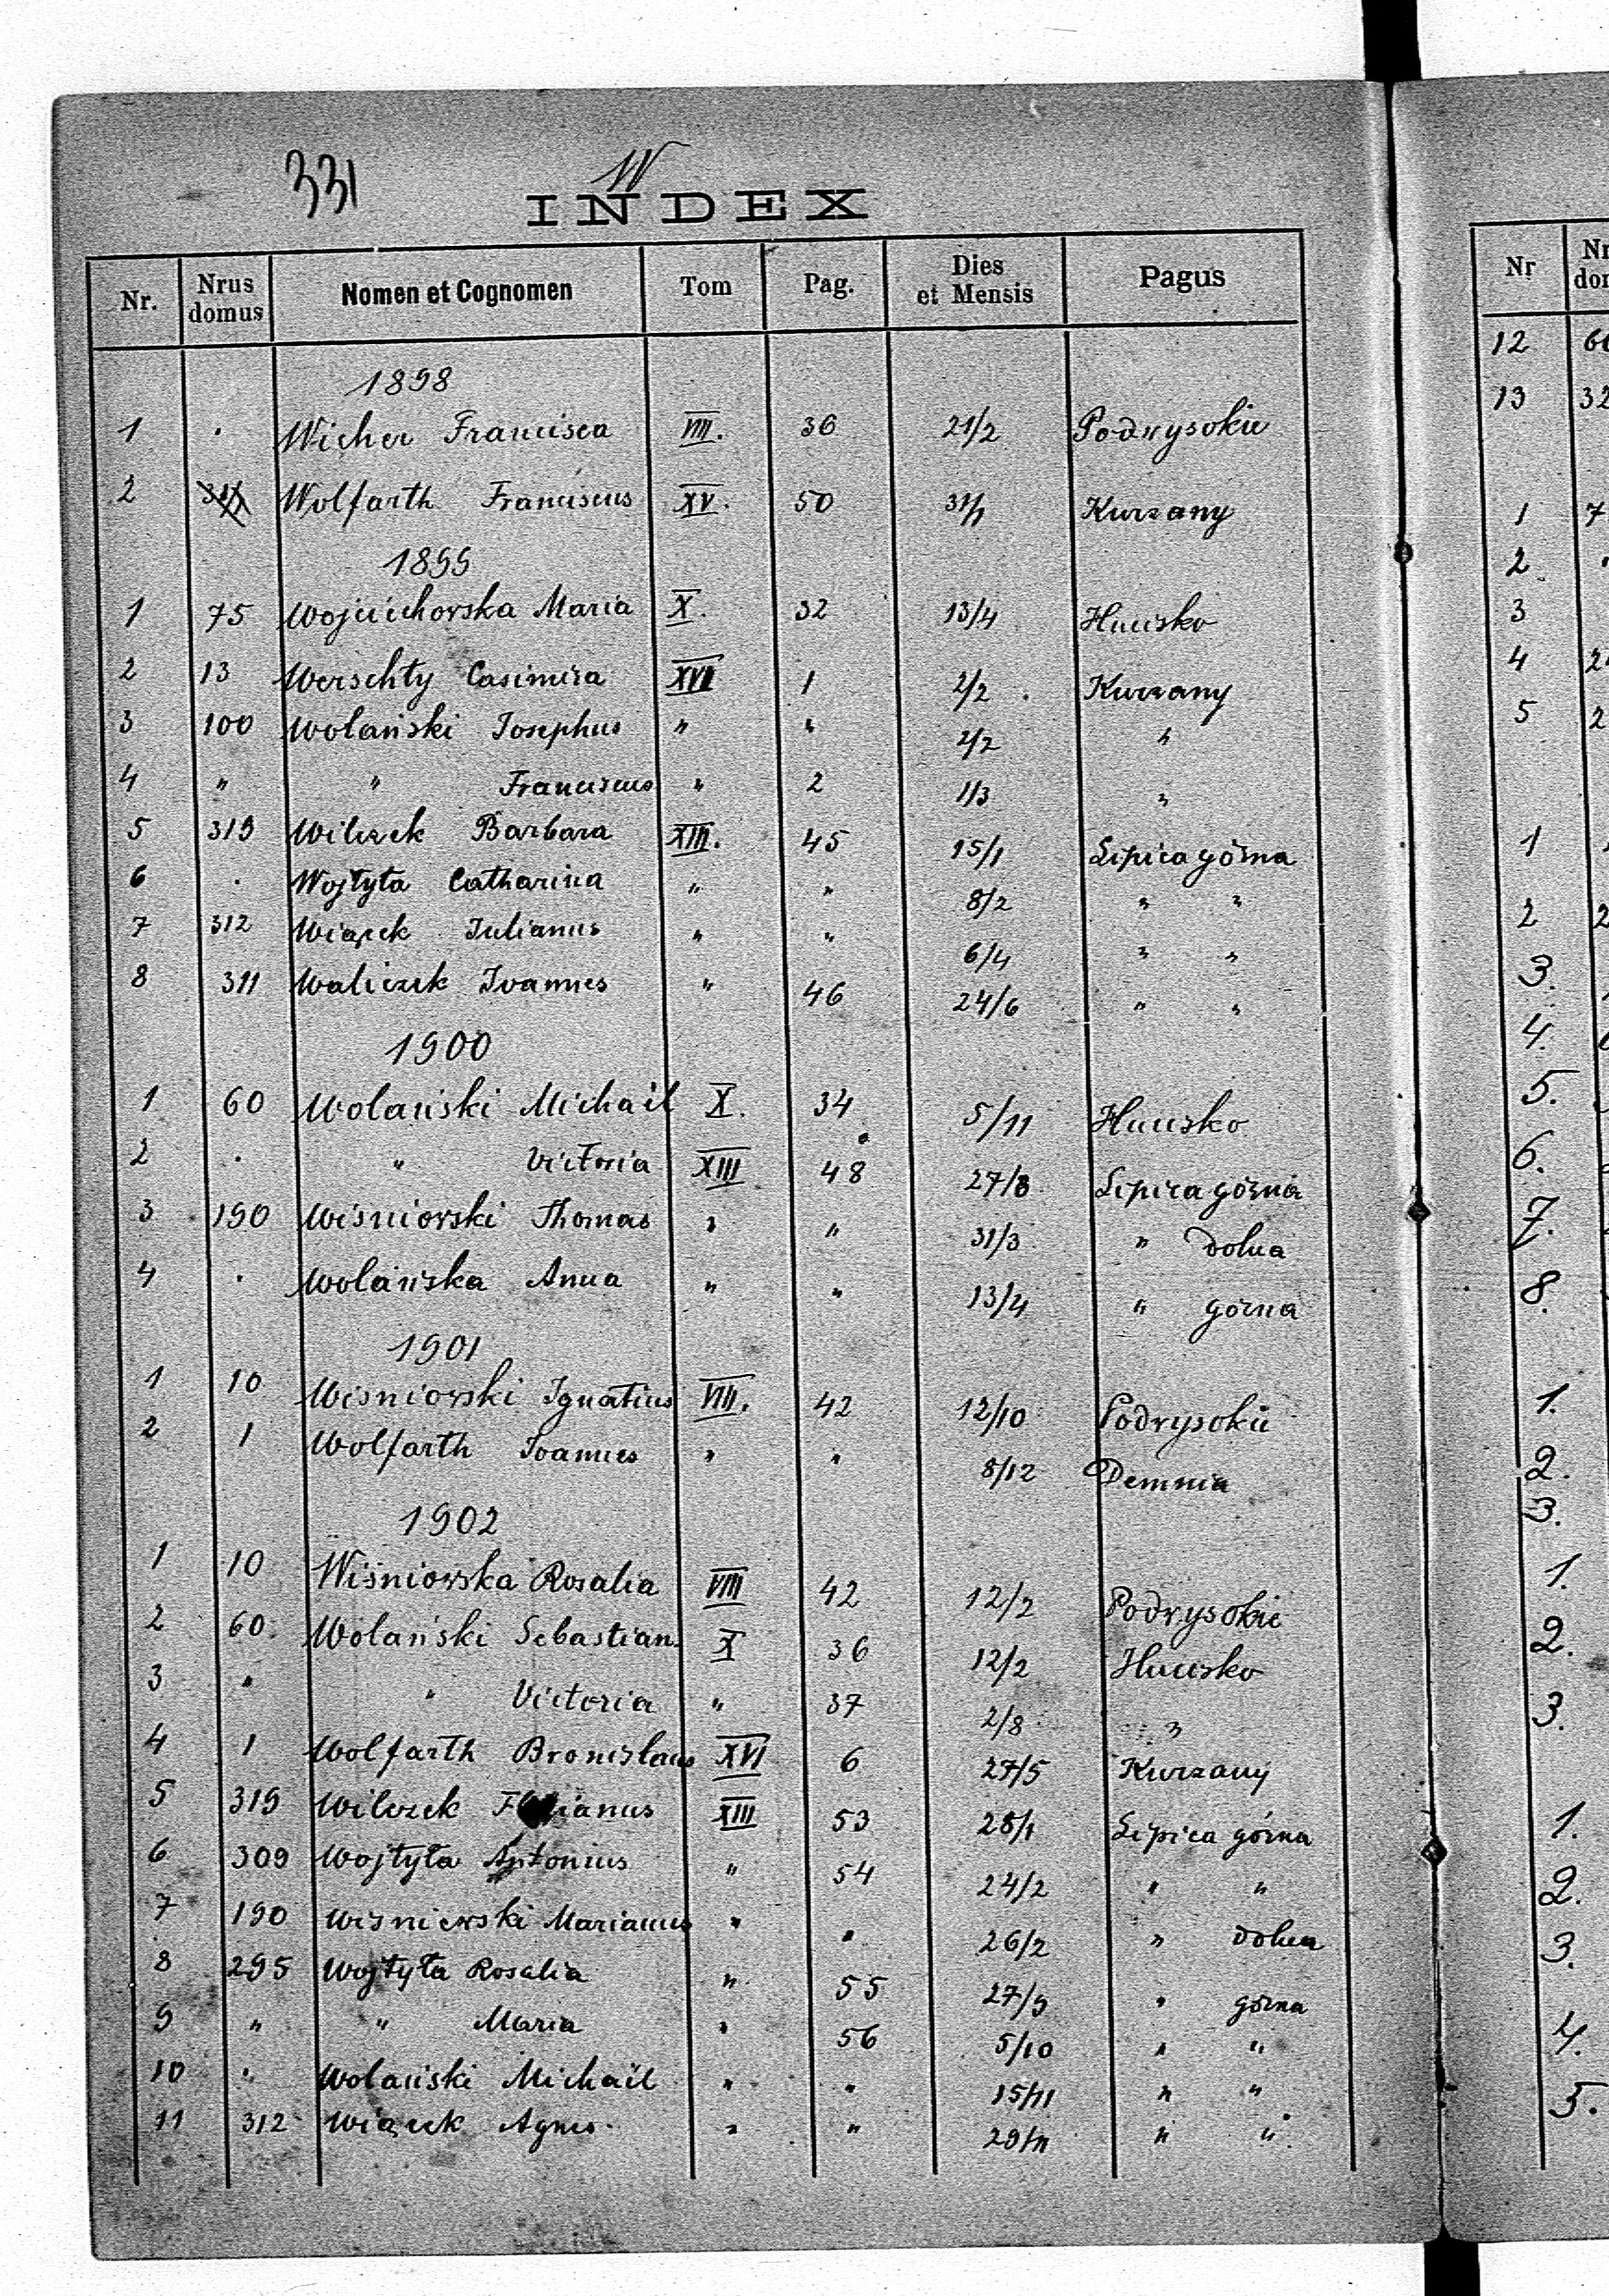 331
W
INDEX
Nr. Nrus domus Nomen et Cognomen Tom Pag. Dies et Mensis Pagus
1898
1 . Wicher Francisca VIII. 36 21/2 Podwysokie
2 Wolfarth Franciscus XV. 50 31/1 Kurzany
1899
1 75 Wojciechowska Maria X. 32 13/4 Hucisko
2 13 Werschty Casimira XVI 1 2/2 . Kurzany
3 100 Wolański Josephus " " 2/2 "
4 " " Franciscus " 2 1/3 "
5 319 Wilczek Barbara XIII. 45 15/1 Lipica górna
6 . Wojtyła Catharina " " 8/2 " "
7 312 Wiącek Julianus " " 6/4 " "
8 311 Waliczek Joannes " 46 24/6 " "
1900
1 60 Wolański Michaël X. 34 5/11 Hucisko
2 . " Victoria XIII 48 27/8 Lipica górna
3 190 Wiśniowski Thomas " " 31/3 " dolna
4 . Wolańska Anna " " 13/4 " górna
1901
1 10 Wiśniowski Ignatius VIII. 42 12/10 Podwysokie
2 1 Wolfarth Joannes " " 8/12 Demnia
1902
1 10 Wiśniowska Rosalia VIII 42 12/2 Podwysokie
2 60. Wolański Sebastian. X 36 12/2 Hucisko
3 " " Victoria " 37 2/8 "
4 1 Wolfarth Bronislaus XVI 6 27/5 Kurzany
5 319 Wilczek XIII 53 28/1 Lipica górna
6 309 Wojtyła Antonius " 54 24/2 " "
7 190 Wiśniewski Marianus " " 26/2 " dolna
8 295 Wojtyła Rosalia " 55 27/9 " górna
9 " " Maria " 56 5/10 " "
10 " Wolański Michaël " " 15/11 " "
11 312 Wiącek Agnes. " " 29/11 " "
Nr
12
13
1
2
3
4
5
1
2
3.
4.
5.
6.
7.
8.
1.
2.
3.
1.
2.
3.
1.
2.
3.
4.
5.